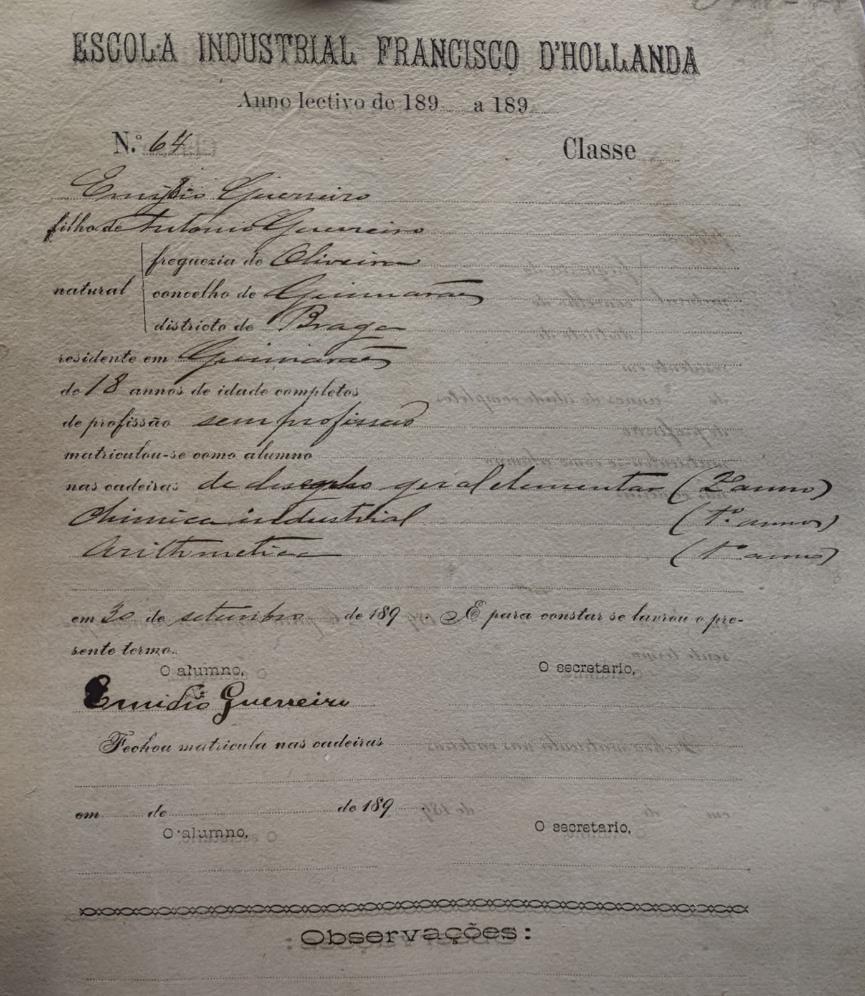 ESCOLA INDUSTRIAL FRANCISCO D'HOLLANDA
Anno lectivo de 189 a 189
N.º 64 Classe
Emygdio Guerreiro
filho de Antonio Guerreiro
natural
freguezia de Oliveira
concelho de Guimarães
districto de Braga
residente em Guimarães
de 18 annos de idade completos
de profissão sem profissão
matriculou-se como alumno
nas cadeiras de desenho geral elementar (2º anno)
Chimica industrial (1º anno)
Arithmetica (1º anno)
em 30 de setembro de 189 . E para constar se lavrou o pre-
sente termo.
O alumno, O secretario,
Emidio Guerreiro
Fechou matricula nas cadeiras
em de de 189
O alumno, O secretario,
Observações: